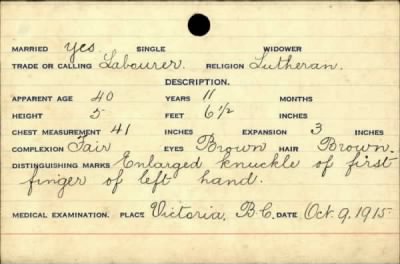 MARRIED yes SINGLE WIDOWER
TRADE OR CALLING Labourer. RELIGION Lutheran.
DESCRIPTION.
APPARENT AGE 40 YEARS 11 MONTHS
HEIGHT 5 FEET 6½ INCHES
CHEST MEASUREMENT 41 INCHES EXPANSION 3 INCHES
COMPLEXION Fair EYES Brown HAIR Brown.
DISTINGUISHING MARKS Enlarged knuckle of first
finger of left hand.
MEDICAL EXAMINATION. PLACE Victoria, B.C. DATE Oct. 9, 1915